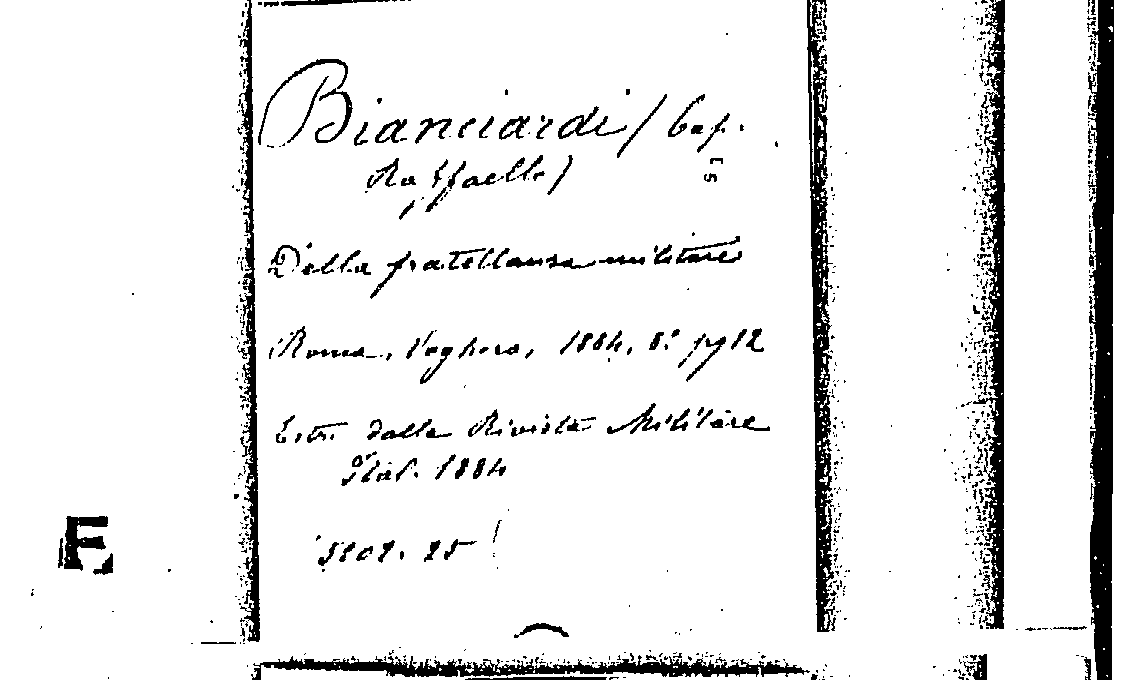 Bianciardi / Cap.
Raffaello /
Della fratellanza militare
Roma, Voghera, 1884, 8.° pg 12
Estr. dalla Rivista Militare
Ital. 1884
5202. 25
F